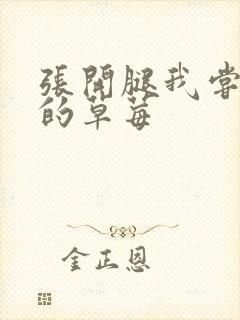 張開腿我嘗
的草莓
金正恩